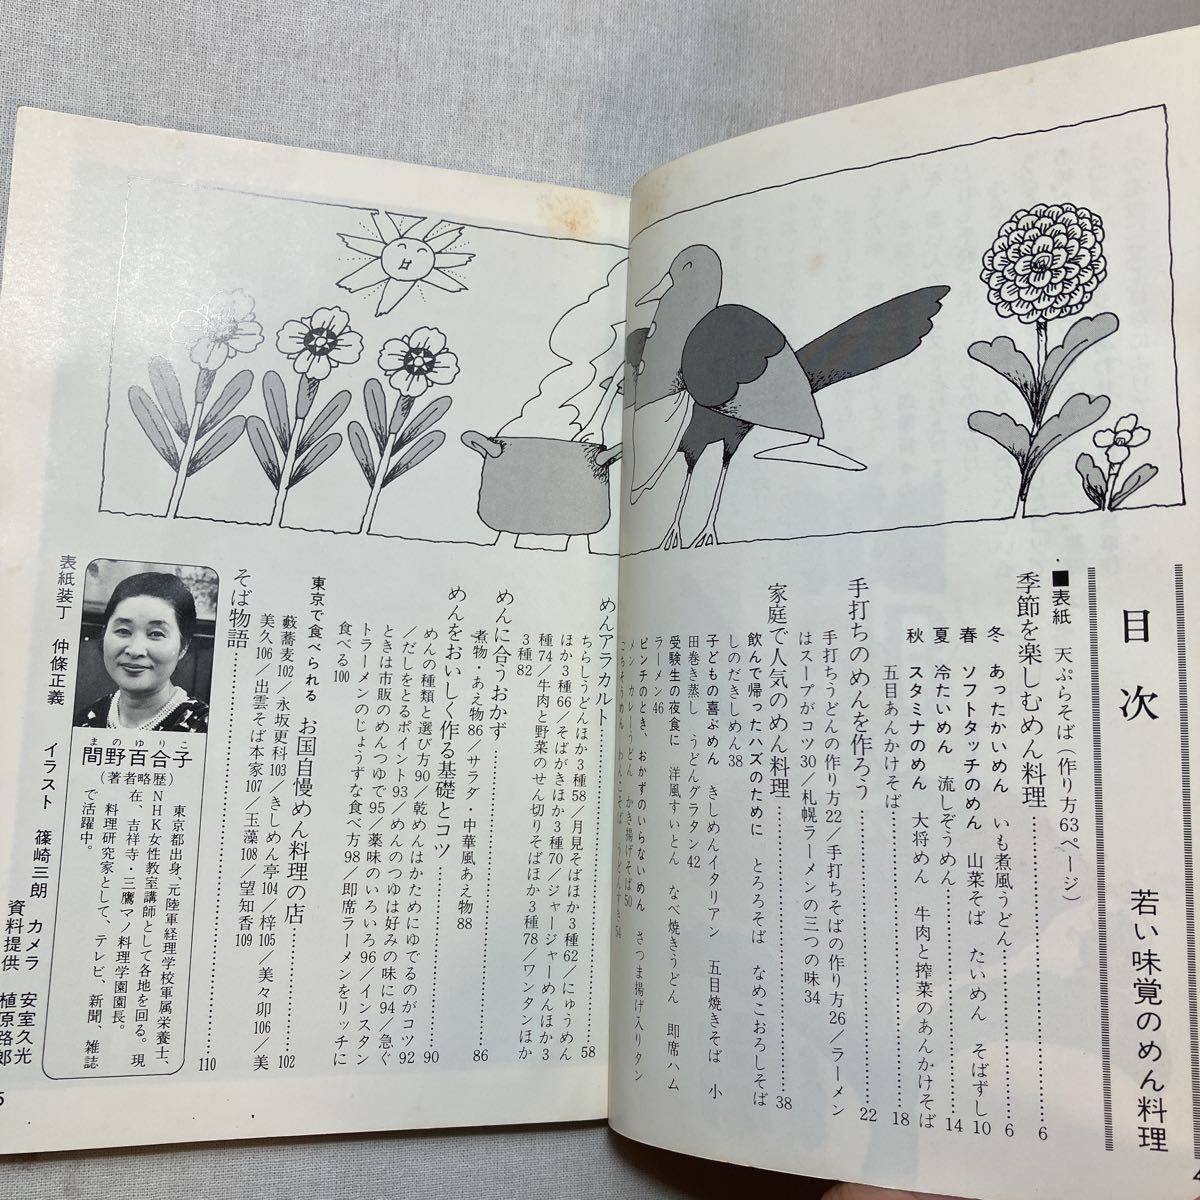 目次 若い味覚のめん料理
■表紙 天ぷらそば(作り方63ページ)
季節を楽しむめん料理……6
冬 あったかいめん いも煮風うどん……6
春 ソフトタッチのめん 山菜そば たいめん そばずし10
夏 冷たいめん 流しぞうめん……14
秋 スタミナのめん 大将めん 牛肉と搾菜のあんかけそば
五目あんかけそば……18
手打ちのめんを作ろう……22
手打ちうどんの作り方22/手打ちそばの作り方26/ラーメン
はスープがコツ30/札幌ラーメンの三つの味34
家庭で人気のめん料理……38
飲んで帰ったハズのために とろろそば なめこおろしそば
しのだきしめん38
子どもの喜ぶめん きしめんイタリアン 五目焼きそば 小
田巻き蒸し うどんグラタン42
受験生の夜食に 洋風すいとん なべ焼きうどん 即席ハム
ラーメン46
ピンチのとき、おかずのいらないめん さつま揚げ入りタン
メン カレーうどん かき揚げそば50
ごちそうめん わんこそば うどんすき54
めんアラカルト……58
ちらしうどんほか3種58/月見そばほか3種62/にゅうめん
ほか3種66/そばがきほか3種70/ジャージャーめんほか3
種74/牛肉と野菜のせん切りそばほか3種78/ワンタンほか
3種82
めんに合うおかず……86
煮物・あえ物86/サラダ・中華風あえ物88
めんをおいしく作る基礎とコツ……90
めんの種類と選び方90/乾めんはかためにゆでるのがコツ92
/だしをとるポイント93/めんのつゆは好みの味に94/急ぐ
ときは市販のめんつゆで95/薬味のいろいろ96/インスタン
トラーメンのじょうずな食べ方98/即席ラーメンをリッチに
食べる100
東京で食べられる お国自慢めん料理の店……102
藪蕎麦102/永坂更科103/きしめん亭104/梓105/美々卯106/美
美久106/出雲そば本家107/玉藻108/望知香109
そば物語……110
まのゆりこ
間野百合子
(著者略歴)
東京都出身、元陸軍経理学校軍属栄養士、
NHK女性教室講師として各地を回る。現
在、吉祥寺・三鷹マノ料理学園園長。
料理研究家として、テレビ、新聞、雑誌
で活躍中。
表紙装丁 仲條正義 イラスト 篠崎三朗 カメラ 安室久光
資料提供 植原路郎
5